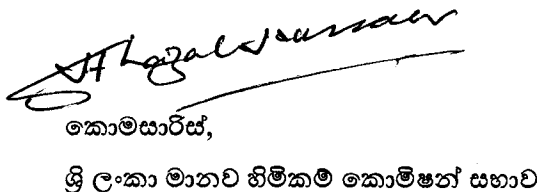 කොමසාරිස්,
ශ්‍රි ලංකා මානව හිමිකම් කොමිෂන් සභාව